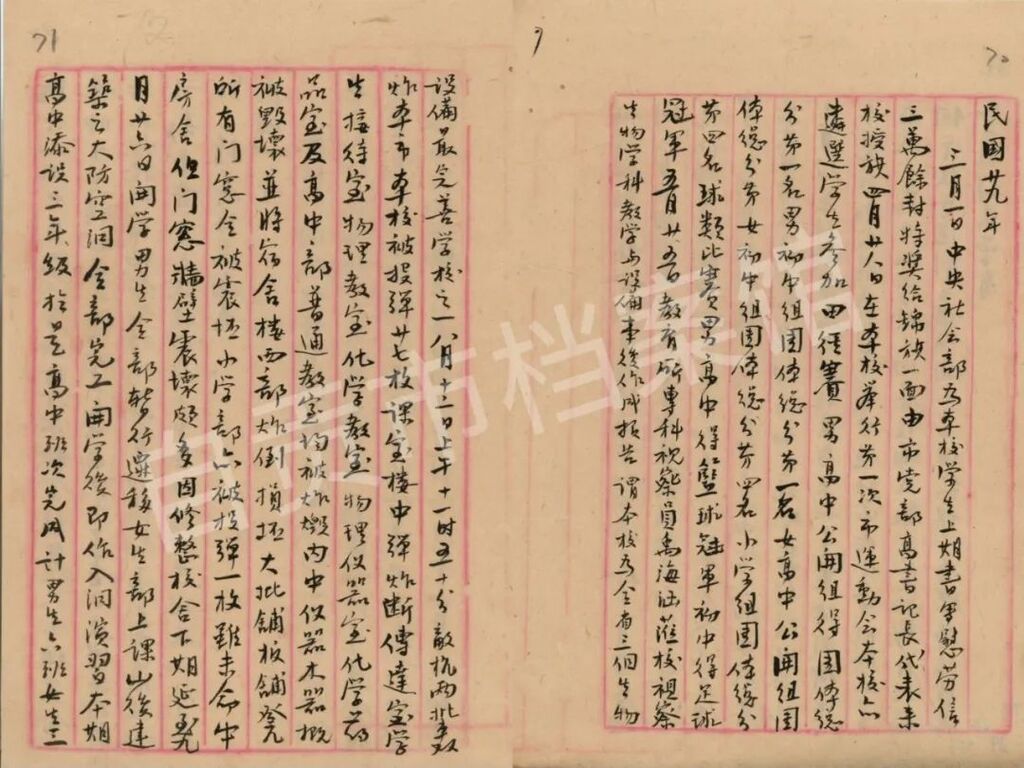 70
民國廿九年
三月一日中央社会部为本校学生上期書军慰劳信
三萬餘封特奖给錦旗一面由市党部高書记長代表来
校授旗四月廿八日在本校举行第一次市運動会本校六
遴選学生参加田徑赛男高中公開组得团体總
分第一名男初中组团体總分第一名女高中公開组团
体總分第女初中组团体總分第四名小学组团体總分
第四名球類比赛男高中得籃球冠軍初中得足球
冠軍五月廿五日教育所專科視察員禹海涵蒞校視察
生物学科教学与设備事後作成报告謂本校为全省三個生物
71
设備最完善学校之一八月十二日上午十一时五十分敵机两批轰
炸本市本校被投弹廿七枚课室樓中弹炸断傳達室学
生接待室物理教室化学教室物理仪器室化学药
品室及高中部普通教室均被炸燬内中仪器木器概
被毀壞並將宿舍樓西部炸倒損坯大批舖板舖凳
所有门窓全被震坯小学部六被投弹一枚雖未命中
房舍但门窓牆壁震壞頗多因修整校舍下期延至九
月廿六日開学男生全部暫行遷移女生部上课山後建
築之大防空洞全部完工開学後即作入洞演習本期
高中添设三年级於是高中班次完成计男生六班女生三
自贡市档案馆